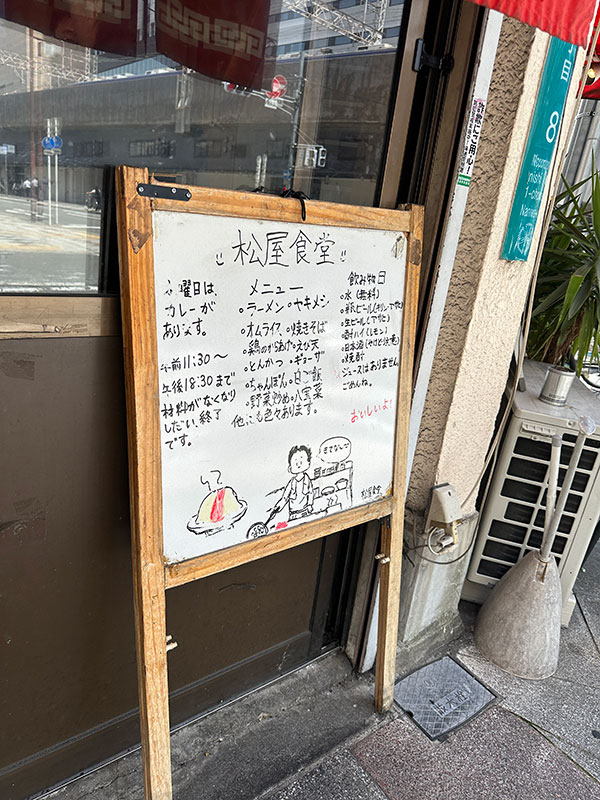 松屋食堂
曜日は、
カレーが
あります。
午前11:30〜
午後18:30まで
材料がなくなり
しだい、終了
です。
メニュー
・ラーメン・ヤキメシ
・オムライス・焼きそば
・鶏のから揚げ・えび天
・とんかつ・ギョーザ
・ちゃんぽん・白ご飯
・野菜炒め・八宝菜
他にも色々あります。
飲み物
・水(無料)
・瓶ビール(キリン・アサヒ)
・生ビール(アサヒ)
・酎ハイ(レモン)
・日本酒
・焼酎
ジュースはありません
ごめんね。
おいしいよ!
きてなんせ
松屋食堂
詐欺にご用心!
目
8
Namba